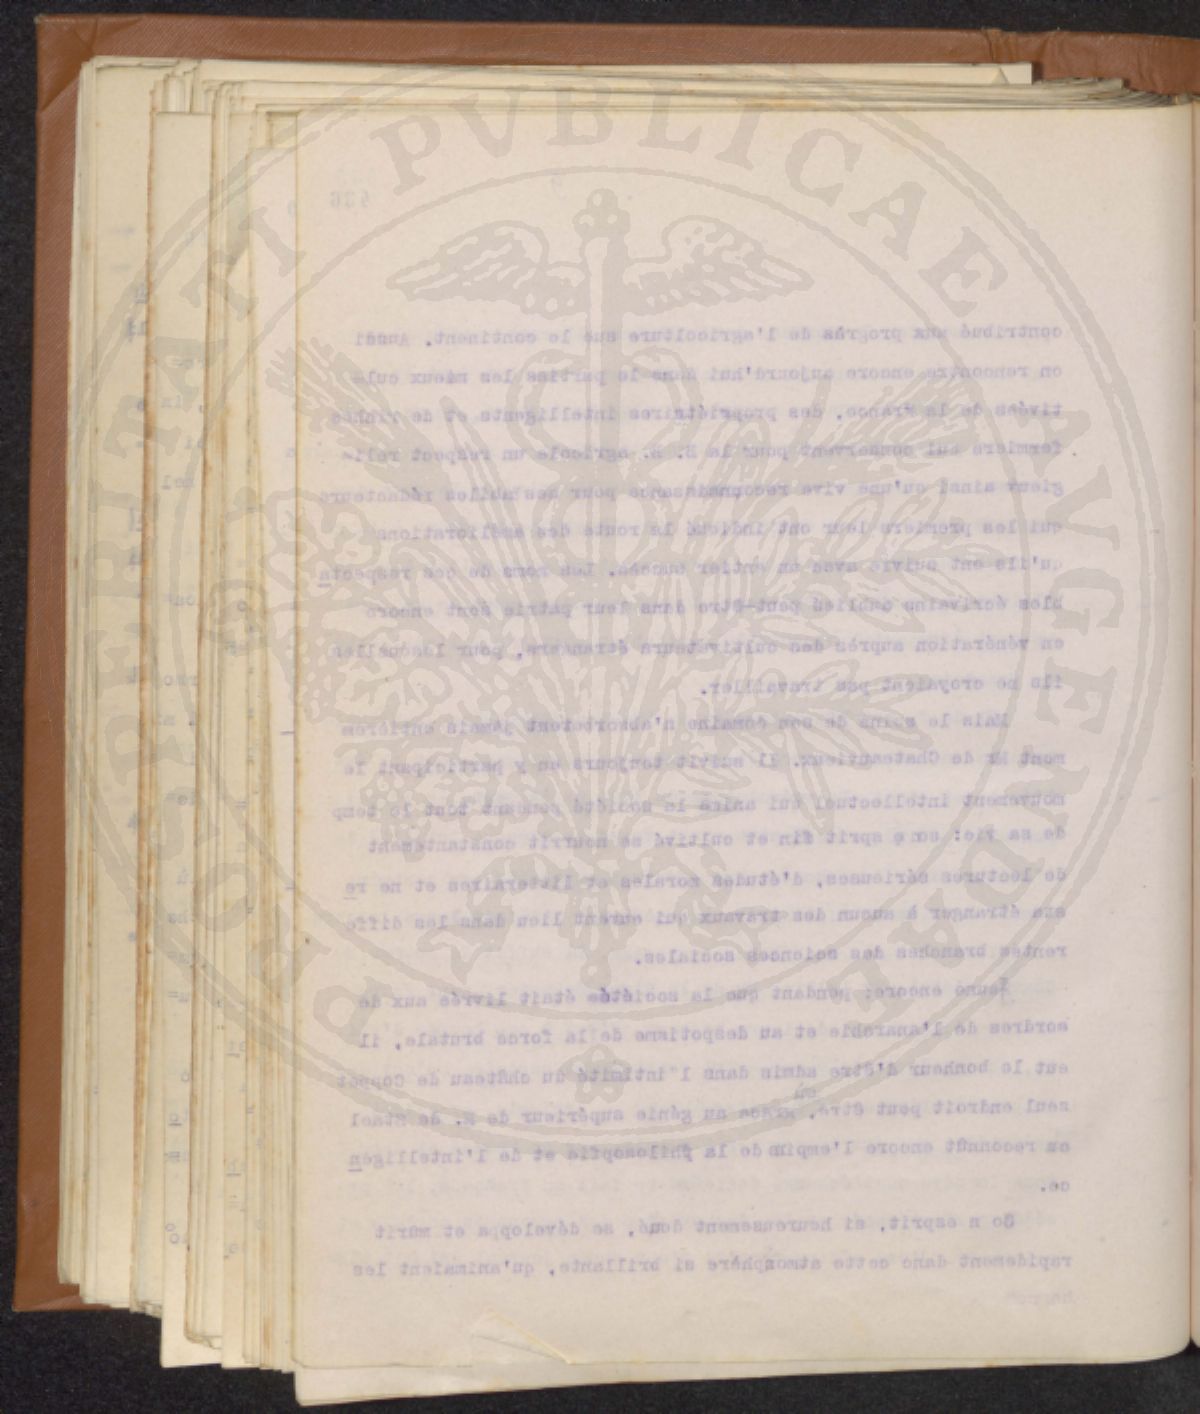 PROSPERITATI PVBLICAE AVGENDAE
436
contribué aux progrès de l'agricolture sue le continent. Aussi
on rencontre encore aujourd'hui dans le parties les mieux cul=
tivées de la France, des propriétaires intelligents et de riches
fermiers qui conservent pour la B. B. agricole un respect reli=
gieux ainsi qu'une vive reconnaissance pour ses habiles rédacteurs
qui les premiers leur ont indiqué la route des améliorations
qu'ils ont suivie avec un entier succès. Les noms de ces respecta
bles écrivains oubliés peut-être dans leur patrie sont encore
en vénération auprès des cultivateurs étrangers, pour lesquelles
ils ne croyaient pas travailler.
Mais le soins de son domaine n'absorbotent jamais entières
ment Mr de Chateauvieux. Il suivit toujours en y participant le
mouvement intellectuel qui anima la société pendant tout le temp
de sa vie: son esprit fin et cultivé se nourrit constantement
de lectures sérieuses, d'études morales et littéraires et ne re
sta étranger à aucun des travaux qui eurent lieu dans les diffé
rentes branches des sciences sociales.
Jeune encore; pendant que la société était livrée aux dé
sordres de l'anarchie et au despotisme de la force brutale, il
eut le bonheur d'être admis dans l'intimité du château de Coppet
seul endroit peut être, grace au génie supérieur de M. de Stael
où
on reconnût encore l'empire de la philosopfie et de l'intelligen
ce.
So n esprit, si heureusement doué, se développa et mûrit
rapidement dans cette atmosphère si brillante, qu'animaient les